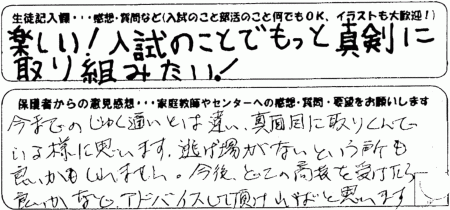 生徒記入欄・・・感想・質問など(入試のこと部活のこと何でもOK、イラストも大歓迎!)
楽しい!入試のことでもっと真剣に
取り組みたい!
保護者からの意見感想・・・家庭教師やセンターへの感想・質問・要望をお願いします
今までのじゅく通いとは違い、真面目に取りくんで
いる様に思います。逃げ場がないという所も
良いかもしれません。今後、どこの高校を受けたら
良いかなど、アドバイスして頂ければと思います